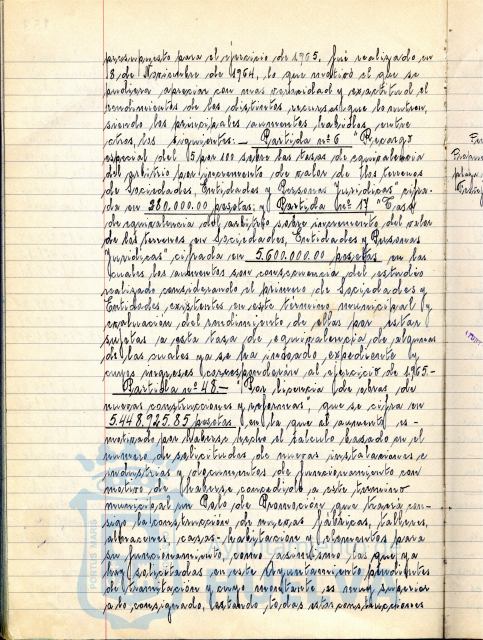 presupuesto para el ejercicio de 1965, fué realizado en
18 de Noviembre de 1964, lo que motivó el que se
pudiera apreciar con mas veracidad y exactitud el
rendimientos de los distintos recursos que lo nutren,
siendo los principales aumentos habidos, entre
otros, los siguientes: — Partida nº 6 "Recargo
especial del 5 por 100 sobre las tasas de equivalencia
del arbitrio por incremento de valor de los terrenos
de Sociedades, Entidades y Personas Jurídicas" cifra-
da en 280.000.00 pesetas; y Partida nº 17 "Tasa
de equivalencia del arbitrio sobre incremento del valor
de los terrenos en Sociedades, Entidades y Personas
Jurídicas" cifrada en 5.600.000.00 pesetas en las
cuales los aumentos son consecuencia del estudio
realizado considerando el número de Sociedades y
Entidades existentes en este termino municipal y
evaluación del rendimiento de ellas por estar
sujetas a esta tasa de equivalencia de algunas
de las cuales ya se ha incoado expediente y
cuyos ingresos corresponderán al ejercicio de 1965.-
Partida nº 48.- "Por licencia de obras de
nuevas construcciones y reformas", que se cifra en
5.448.925.85 pesetas en la que el aumento es-
motivado por haberse hecho el calculo basado en el
numero de solicitudes de nuevas instalaciones e
industrias y documentos de funcionamiento con
motivo de haberse concedido a este termino
municipal un Polo de Promoción que traerá con-
sigo la construcción de nuevas fábricas, talleres,
almacenes, casas-habitación y elementos para
su funcionamiento, como asimismo las que ya
hay solicitadas en este Ayuntamiento pendientes
de tramitación y cuyo montante es muy superior
a lo consignado, estando todas estas construcciones
PORTUS MARIS